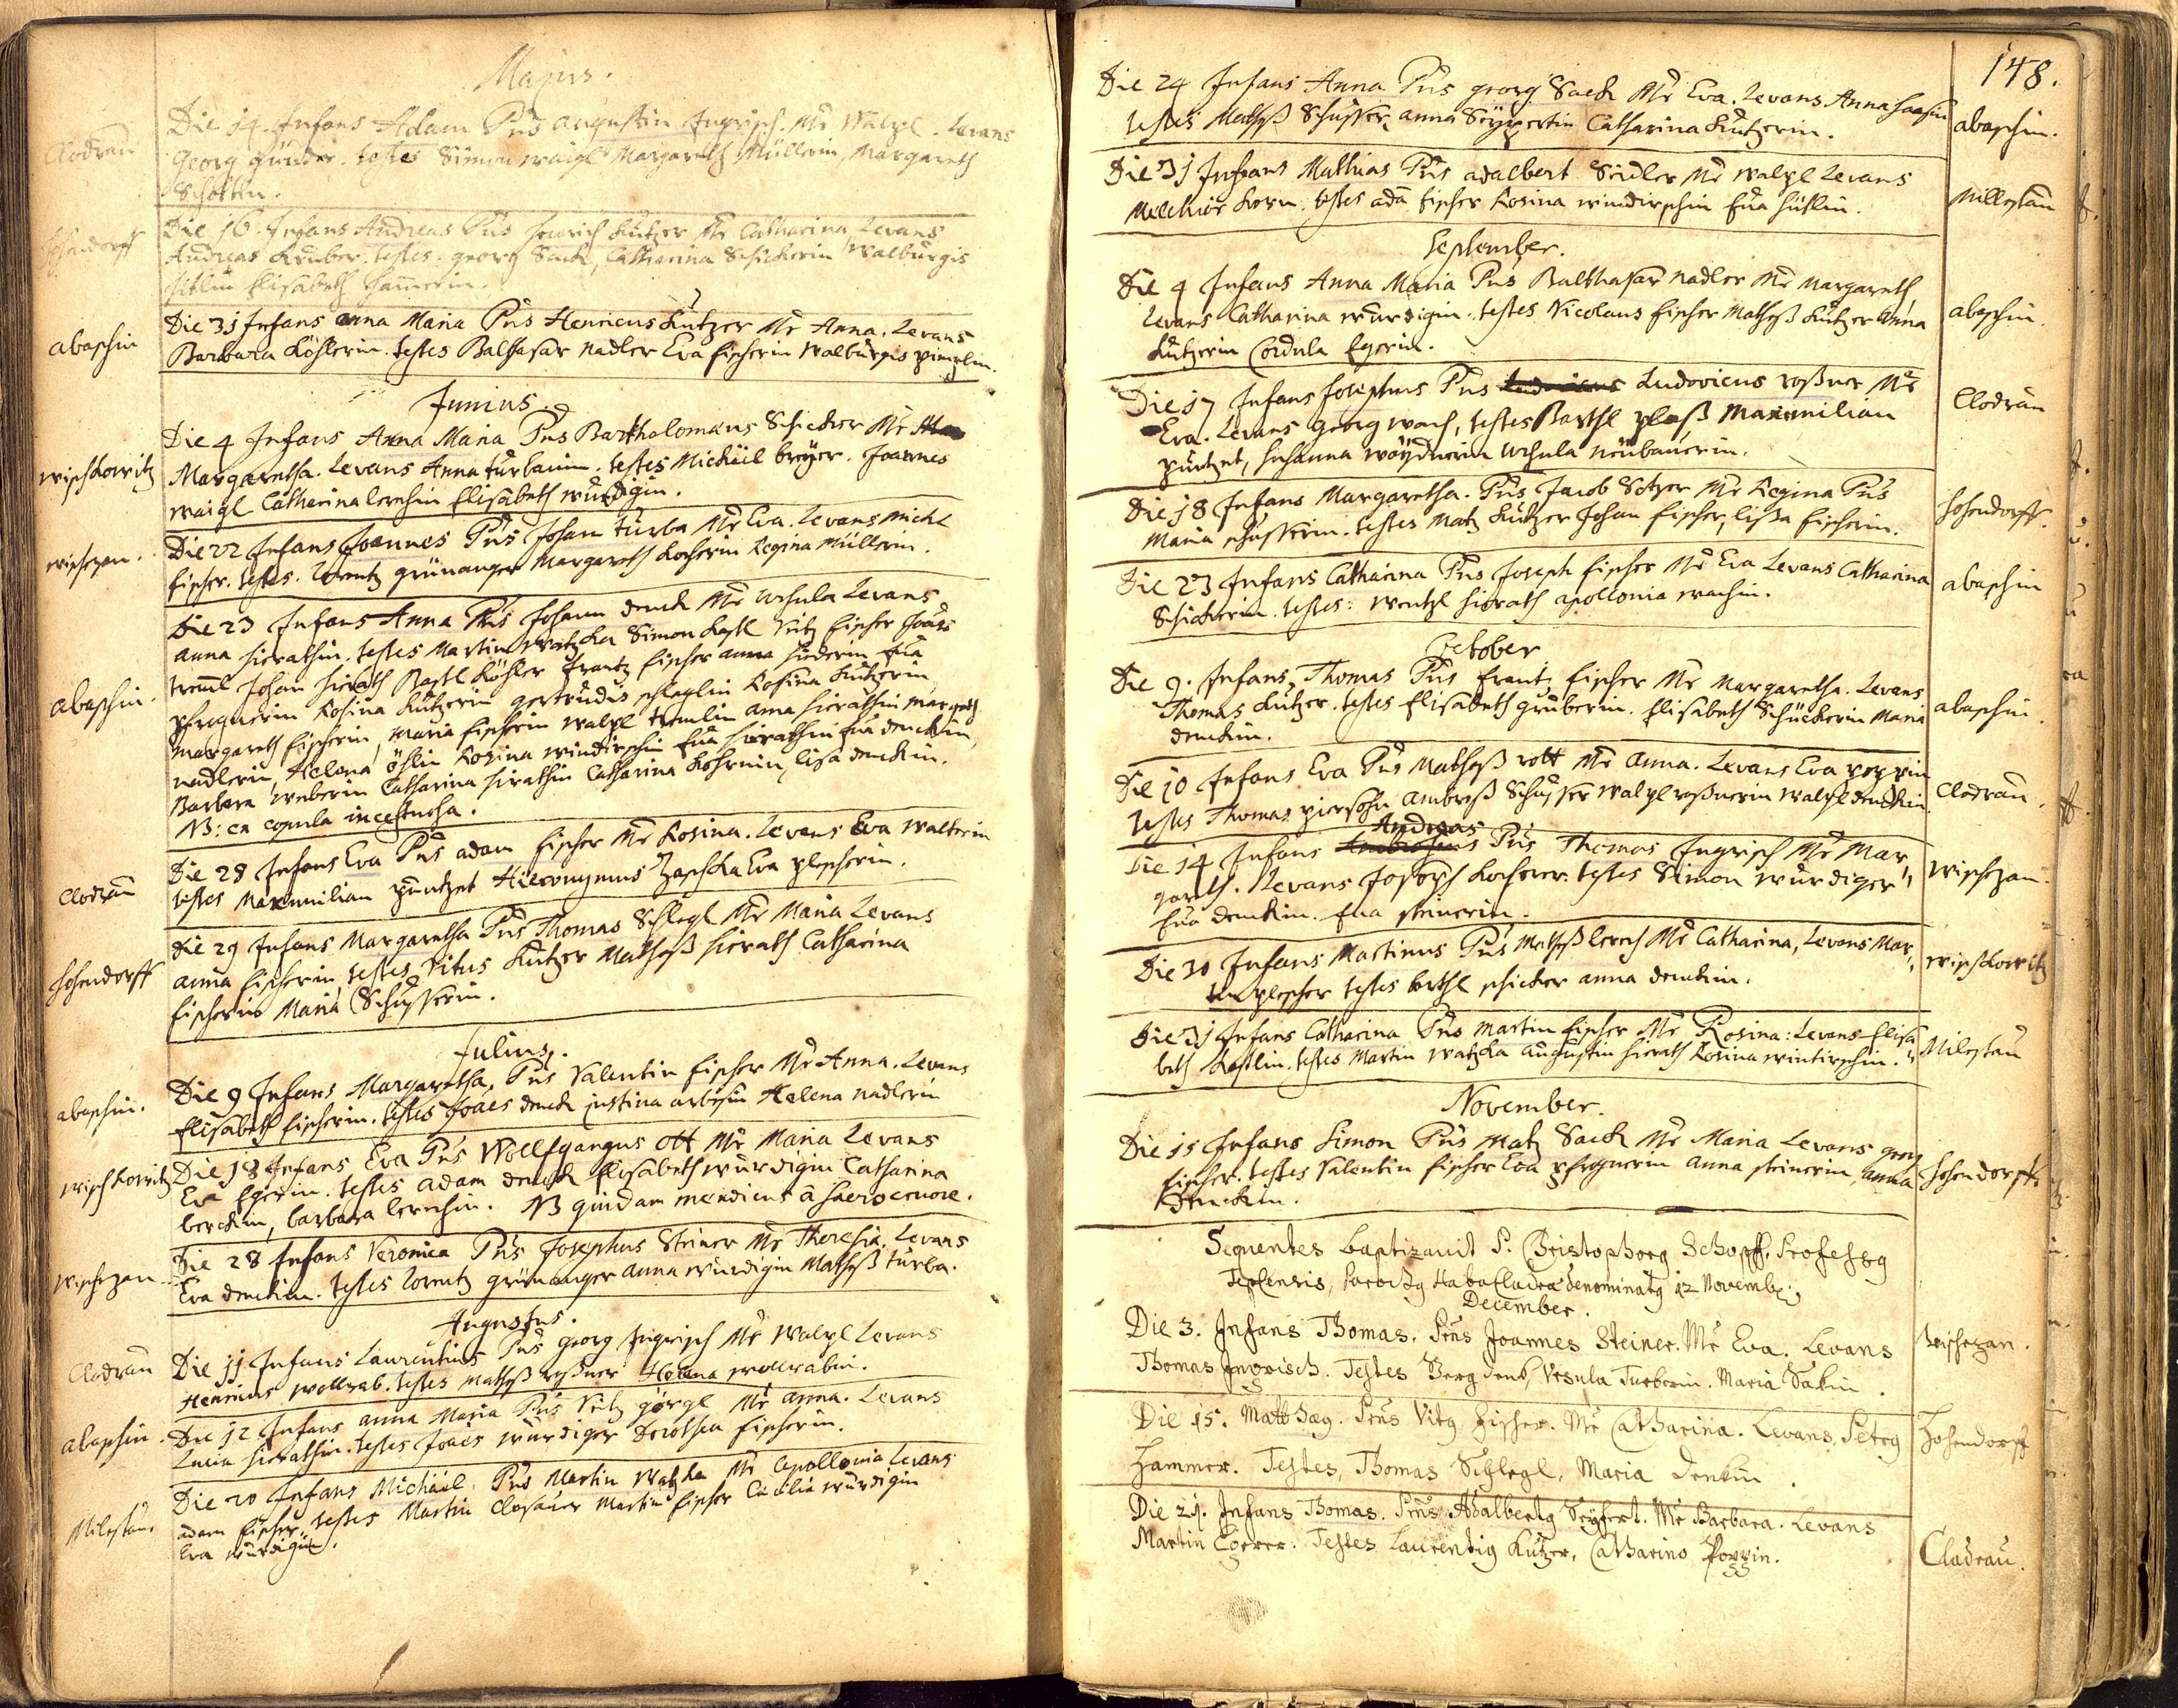 Majus.
Clodrau
Die 14. Infans Adam Pris Augustin Ingrisch. Mr Walpl. Levans
Georg günder. testes Simon waigl Margareth Müllerin, Margareth
Schottin.
Hohendorff
Die 16. Infans Andreas Pris Henrich Kutzer Mr Catharina Levans
Andreas Kruber. testes. georg Sack, Catharina Schickerin Walburgis
Elisabeth
abaschin
Die 31 Infans anna Maria Pris Henricus Kutzer Mr Anna. Levans
Barbara Köhlerin. testes Balthasar Nadler Eva fischerin Walburgis
Junius.
wischkowitz
Die 4 Infans Anna Maria Pris Bartholomæus Schicker Mr
Margaretha. Levans Anna turbauin. testes Michäel breyer. Joannes
waigl Catharina lerchin Elisabeth würdigin.
wischezan.
Die 22 Infans Joannes Pris Johan turba Mr Eva. Levans michl
fischer. testes. Lorentz grünanger Margareth Kocherin Regina Müllerin.
abaschin.
Die 23 Infans Anna Pris Johann denck Mr Ursula Levans
anna hierathin, testes Martin watzka Simon Kastl Veitz fischer Joães
treml Johan hierath Bastl Köhler frantz fischer anna
Rosina Kutzerin gertrudis schleglin Rosina Kutzerin,
Margareth fischerin, Maria fischerin walpl tremlin anna hierathin margreth
nadlerin, Helena öhlin Rosina windirschin Eva hierathin Eva denckin,
Barbara weberin Catharina hirathin Catharina Kohrnin, lisa denckin.
NB: ex copula incestuosa.
Clodrau
Die 28 Infans Eva Pris adam fischer Mr Rosina. Levans Eva walterin
testes Maximilian püntzet Hieronymus Zaschka Eva plescherin.
hohendorff
Die 29 Infans Margaretha Pris Thomas Schlegl Mr Maria Levans
anna fischerin, testes Vitus Kutzer Mathesß hierath Catharina
fischerin Maria Schusserin.
Julius.
abaschin.
Die 9 Infans Margaretha, Pris Valentin fischer Mr Anna. Levans
Elisabeth fischerin. testes Joães denck justina arbesin Helena nadlerin
wischkowitz
Die 18 Infans Eva Pris Wolffgangus Ott Mr Maria Levans
Eva Egerin. testes adam denck Elisabeth würdigin Catharina
berckin, barbara lerchin. NB quidam mendicus â sacro cruore.
wischezan
Die 28 Infans Veronica Pris Josephus Steiner Mr Theresia. Levans
Eva denckin. testes Lorentz grünanger anna würdigin Mathesß turba.
Augustus.
Clodrau
Die 11 Infans Laurentius Pris georg Ingrisch Mr Walpl Levans
Henricus wollrab. testes Mathesß roßner Helena wollrabin.
abaschin.
Die 12 Infans anna Maria Pris Veitz görgl Mr anna. Levans
Lucia hierathin. testes Joães würdiger Dorothea fischerin.
Milestau.
Die 20 Infans Michäel, Pris Martin Watzka Mr Apollonia Levans
adam fischer testes Martin Closauer Martin fischer Cäcilia würdigin
Eva würdigin.
148.
Die 24 Infans Anna Pris georg Sack Mr Eva. Levans Anna haasin
testes Mathesß Schusser, anna Seyfertin Catharina Kutzerin.
abaschin.
Die 31 Infans Mathias Pris adalbert Seidler Mr walpl Levans
Melchior Korn. testes adã fischer Rosina windirschin Eva
Millestau
September.
Die 4 Infans Anna Maria Pris Balthasar nadler Mr Margareth
Levans Catharina würdigin. testes Nicolaus fischer Mathesß Kutzer Anna
Kutzerin Cordula Egerin.
abaschin.
Die 17 Infans Josephus Pris Ludovicus roßner Mr
Eva. Levans georg wach, testes Barthl pleß Maximilian
püntzet, Susanna wöydnerin Ursula neübauerin.
Clodrau
Die 18 Infans Margaretha. Pris Jacob Setzer Mr Regina Pris
Maria schusserin. testes Matz Kutzer Johan fischer, lisa fischerin.
hohendorff.
Die 23 Infans Catharina Pris Joseph fischer Mr Eva Levans Catharina
Schickerin. testes: wentzl hierath apollonia wachin.
abaschin
October
Die 9. Infans, Thomas Pris frantz fischer Mr Margaretha. Levans
Thomas Kutzer. testes Elisabeth gruberin. Elisabeth Schückerin Maria
denckin.
abaschin.
Die 10 Infans Eva Pris Mathesß rott Mr Anna. Levans Eva poppin
testes Thomas piersohn ambroß Schusser walpl roßnerin walpl denckin
Clodrau.
Andreas
Die 14 Infans Ambrosius Pris Thomas Ingrisch Mr Mar-
gareth. Levans Joseph Kocherer. testes Simon würdiger
Eva denckin. Eva steinerin.
wischezan.
Die 30 Infans Martinus Pris Mathesß lerch Mr Catharina, Levans Mar-
tin plescher testes barthl schicker anna denckin.
wischkowitz
Die 31 Infans Catharina Pris Martin fischer Mr Rosina: Levans Elisa
beth Kastlin. testes Martin watzka Augustin hierath Rosina wintirschin.
Milestau
November.
Die 15 Infans Simon Pris Matz Sack Mr Maria Levans georg
fischer. testes Valentin fischer Eva anna steinerin, anna
denckin.
Hohendorff.
Sequentes baptizavit P. Christophorg Schopff, Professg
Teplensis, Parochg Haba Cladra denominatg 12 Novembr.
December.
Die 3. Infans Thomas. Pris Joannes Steiner. Mr Eva. Levans
Thomas Ingrisch. Testes Georg denk, Ursula Turberin. Maria Sakin.
Wischezan.
Die 15. Matthæg. Pris Vitg Fischer. Mr Catharina. Levans, Petrg
Hammer. Testes, Thomas Schlegl, Maria Denkin.
Hohendorff
Die 21. Infans Thomas. Pris Adalbertg Seyfert. Mr Barbara. Levans
Martin Egerer. Testes Laurentig Kutzer, Catharina Poppin.
Cladrau.